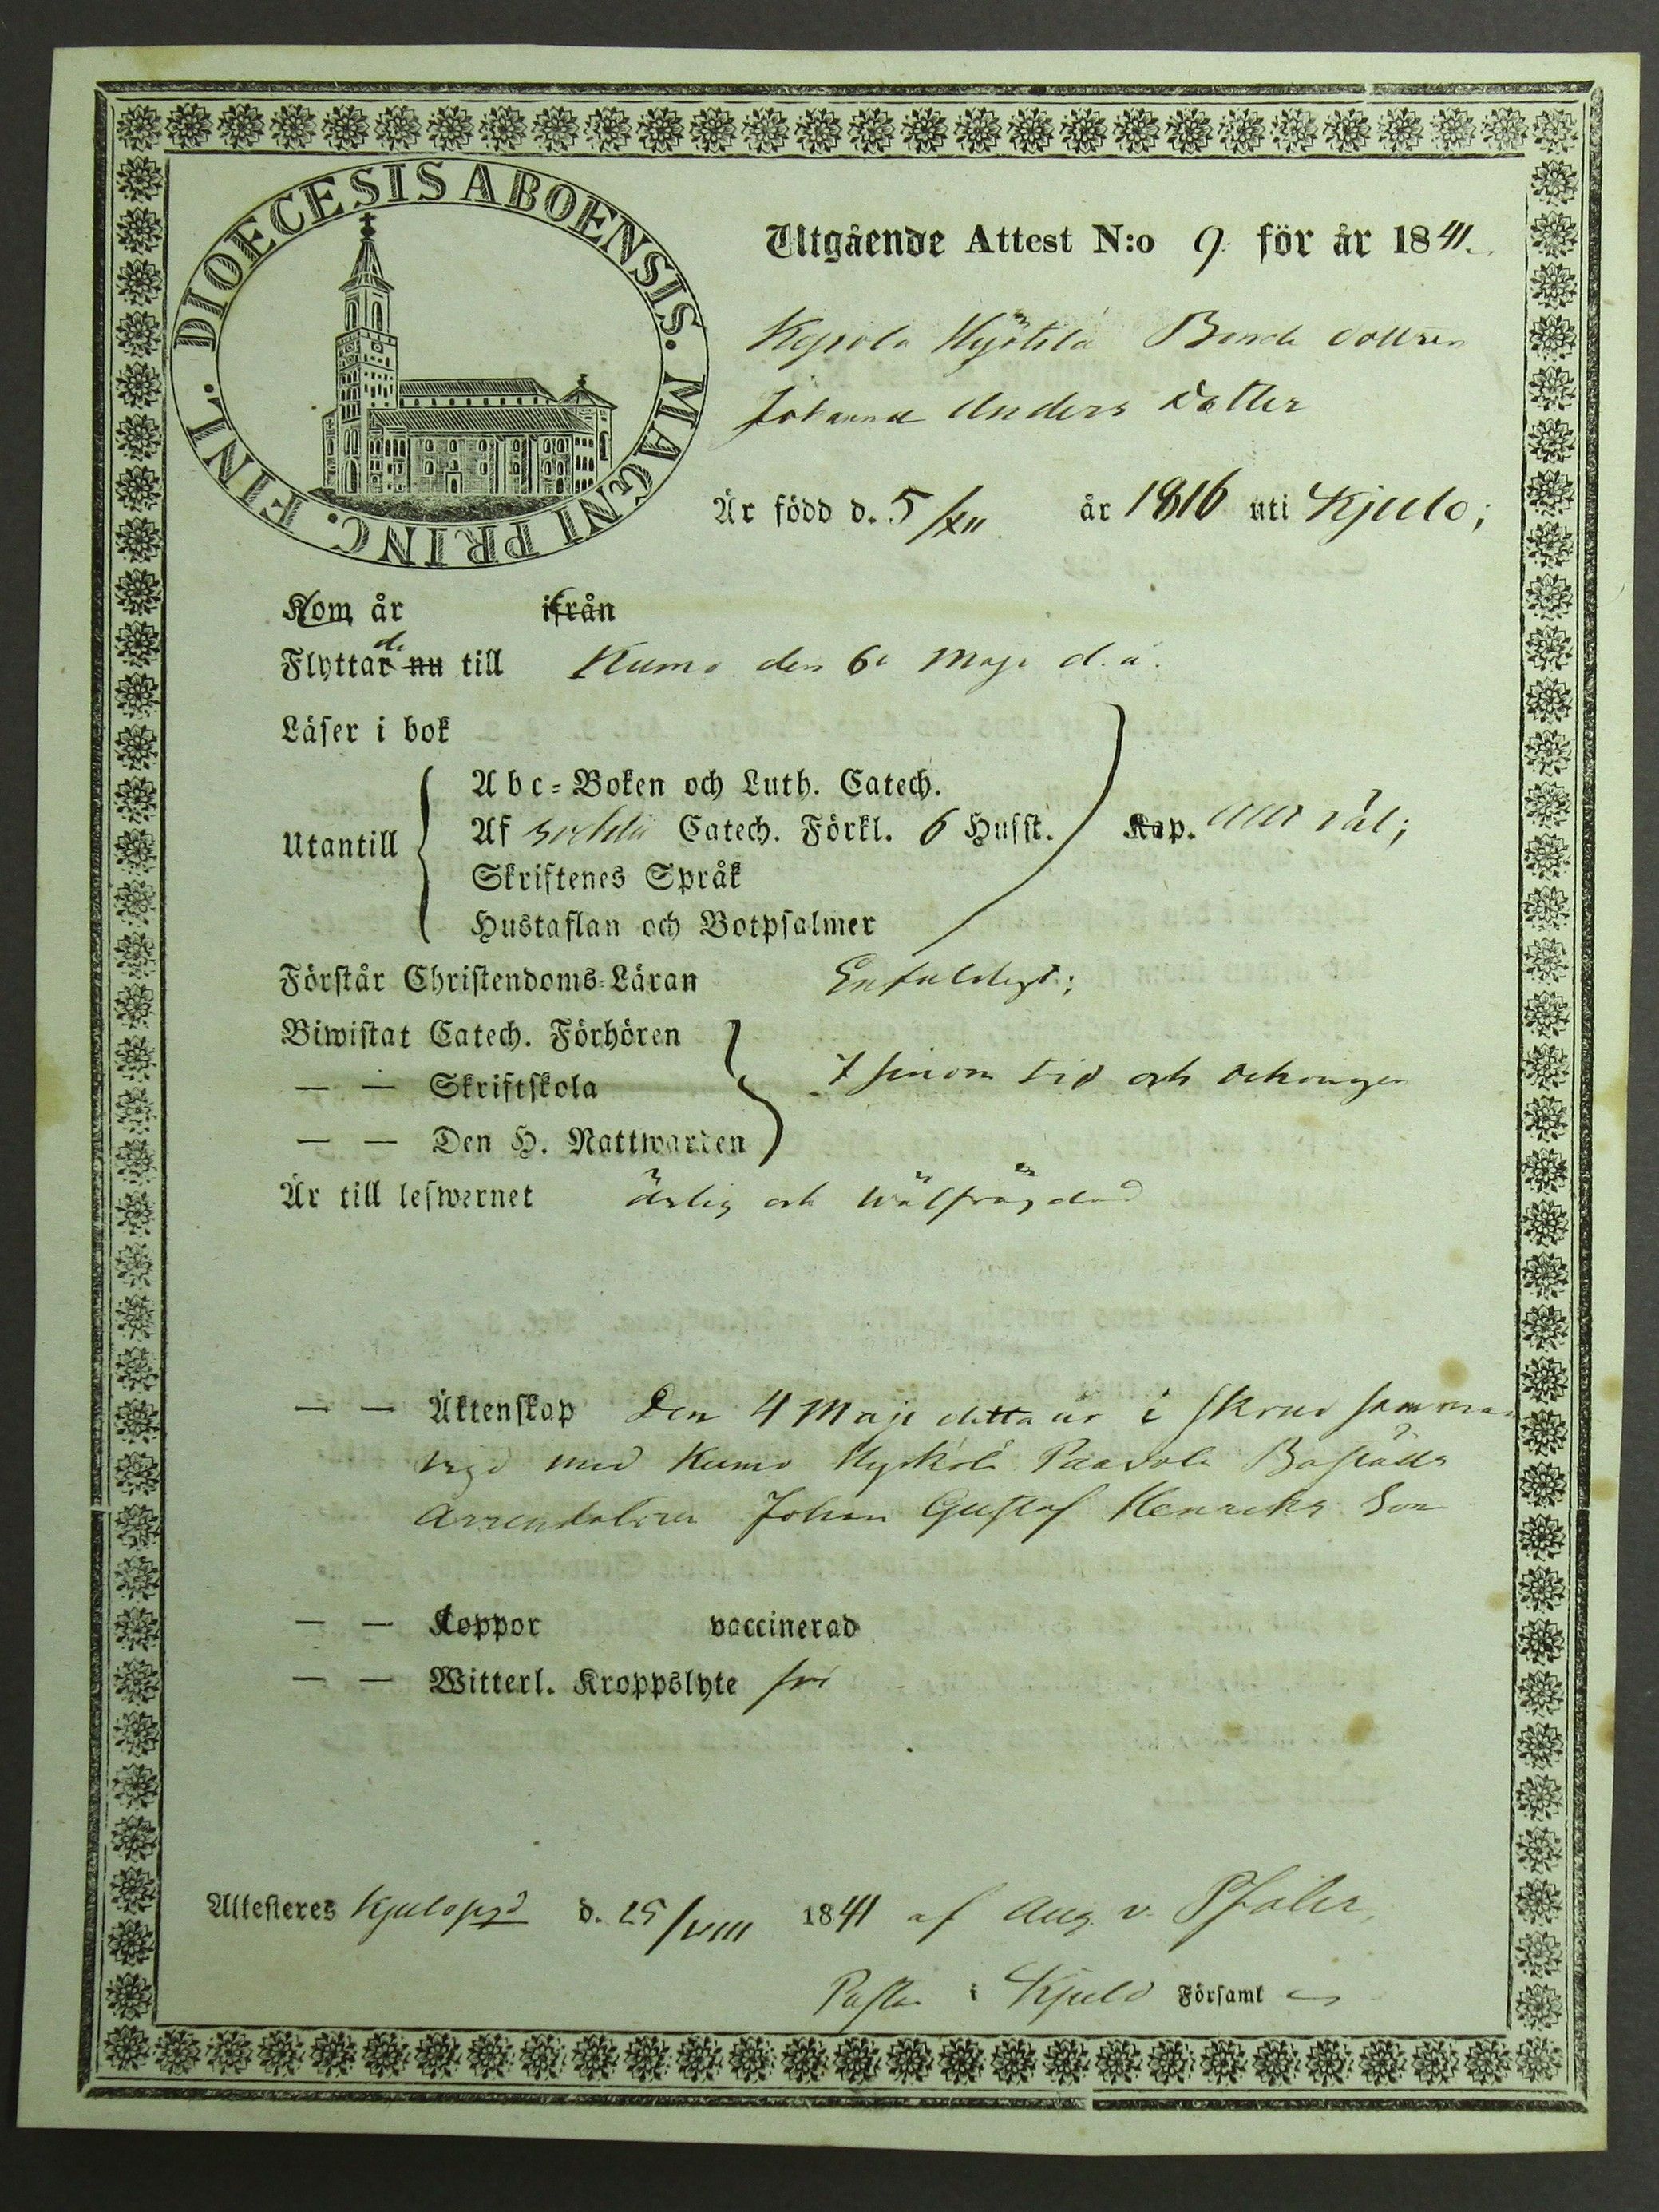 DIOECESIS ABOENSIS. MAGNI PRINC. FINL.
Utgående Attest N:o 9 för år 1841.
Bonde dottren
Johanna Anders dotter
Är född d. 5/XII år 1816 uti Kjulo;
Kom år ifrån
Flyttar de nu till Kumo den 6e Maji d. å.
Läser i bok
Abc-Boken och Luth. Catech.
Utantill Af Catech. Förkl. 6 Husst. Kap. allt väl;
Skriftenes Språk
Hustaflan och Botpsalmer
Förstår Christendoms-Läran Enfaldigt;
Biwistat Catech. Förhören
— — Skriftskola I sinom tid och ordning
— — Den H. Nattwarden
Är till lefwernet ärlig och wälfrägdad
— — Äktenskap Den 4 Maji detta år i Kjulo samman
vigd med Kumo Paavola Boställs
Arrendatoren Johan Gustaf Henriks Son
— — Koppor vaccinerad
— — Witterl. Kroppslyte fri
Attesteres Kjulo pgd d. 25/VIII 1841 af Aug. v. Pfaler,
Pastor i Kjulo Församl